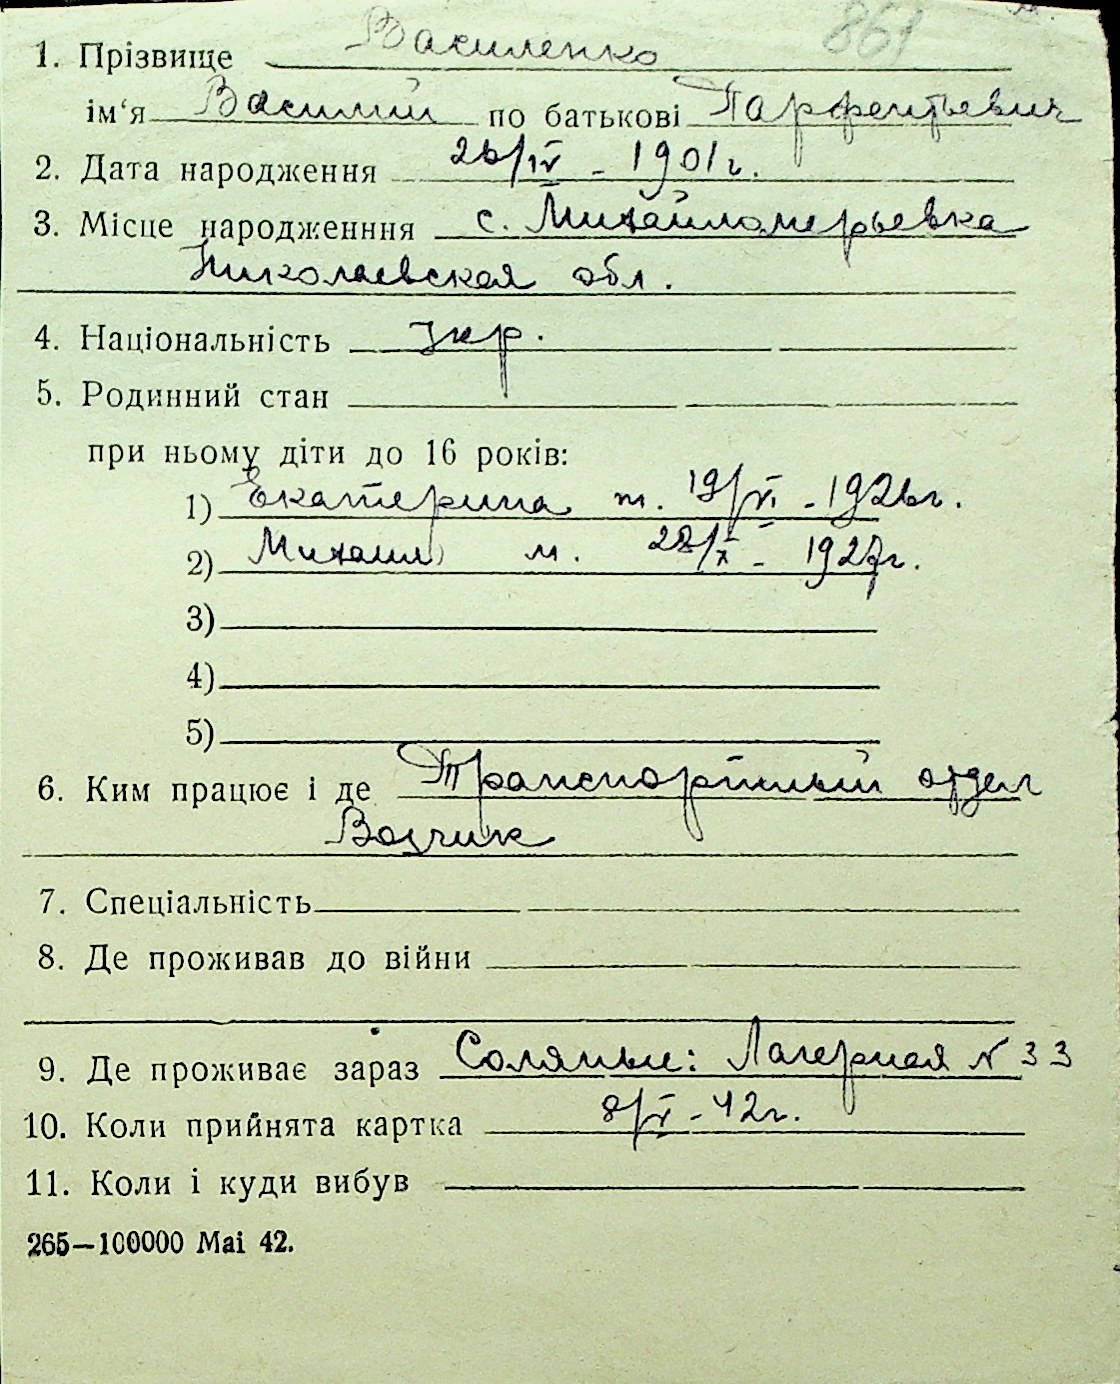 861
1. Прізвище Василенко
ім'я Василий по батькові Парфентьевич
2. Дата народження 26/IV - 1901г.
3. Місце народженння с. Михайломерьевка
Николаевская обл.
4. Національність Укр.
5. Родинний стан
при ньому діти до 16 років:
1) Екатерина ж. 19/VI - 1926г.
2) Михаил м. 28/X - 1927г.
3)
4)
5)
6. Ким працює і де Транспортный отдел
Возчик
7. Спеціальність
8. Де проживав до війни
9. Де проживає зараз Соляные: Лагерная N 33
10. Коли прийнята картка 8/V - 42г.
11. Коли і куди вибув
265—100000 Mai 42.